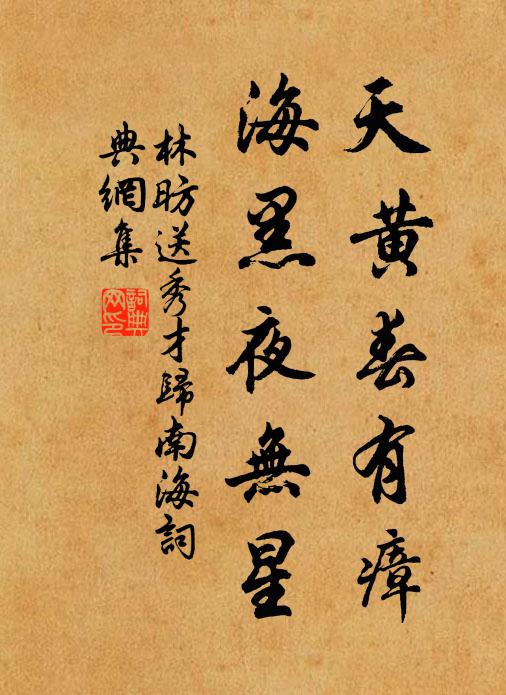 天黄春有瘴
海黑夜無星
林昉送秀才歸南海詞
典網集
詞典
网印